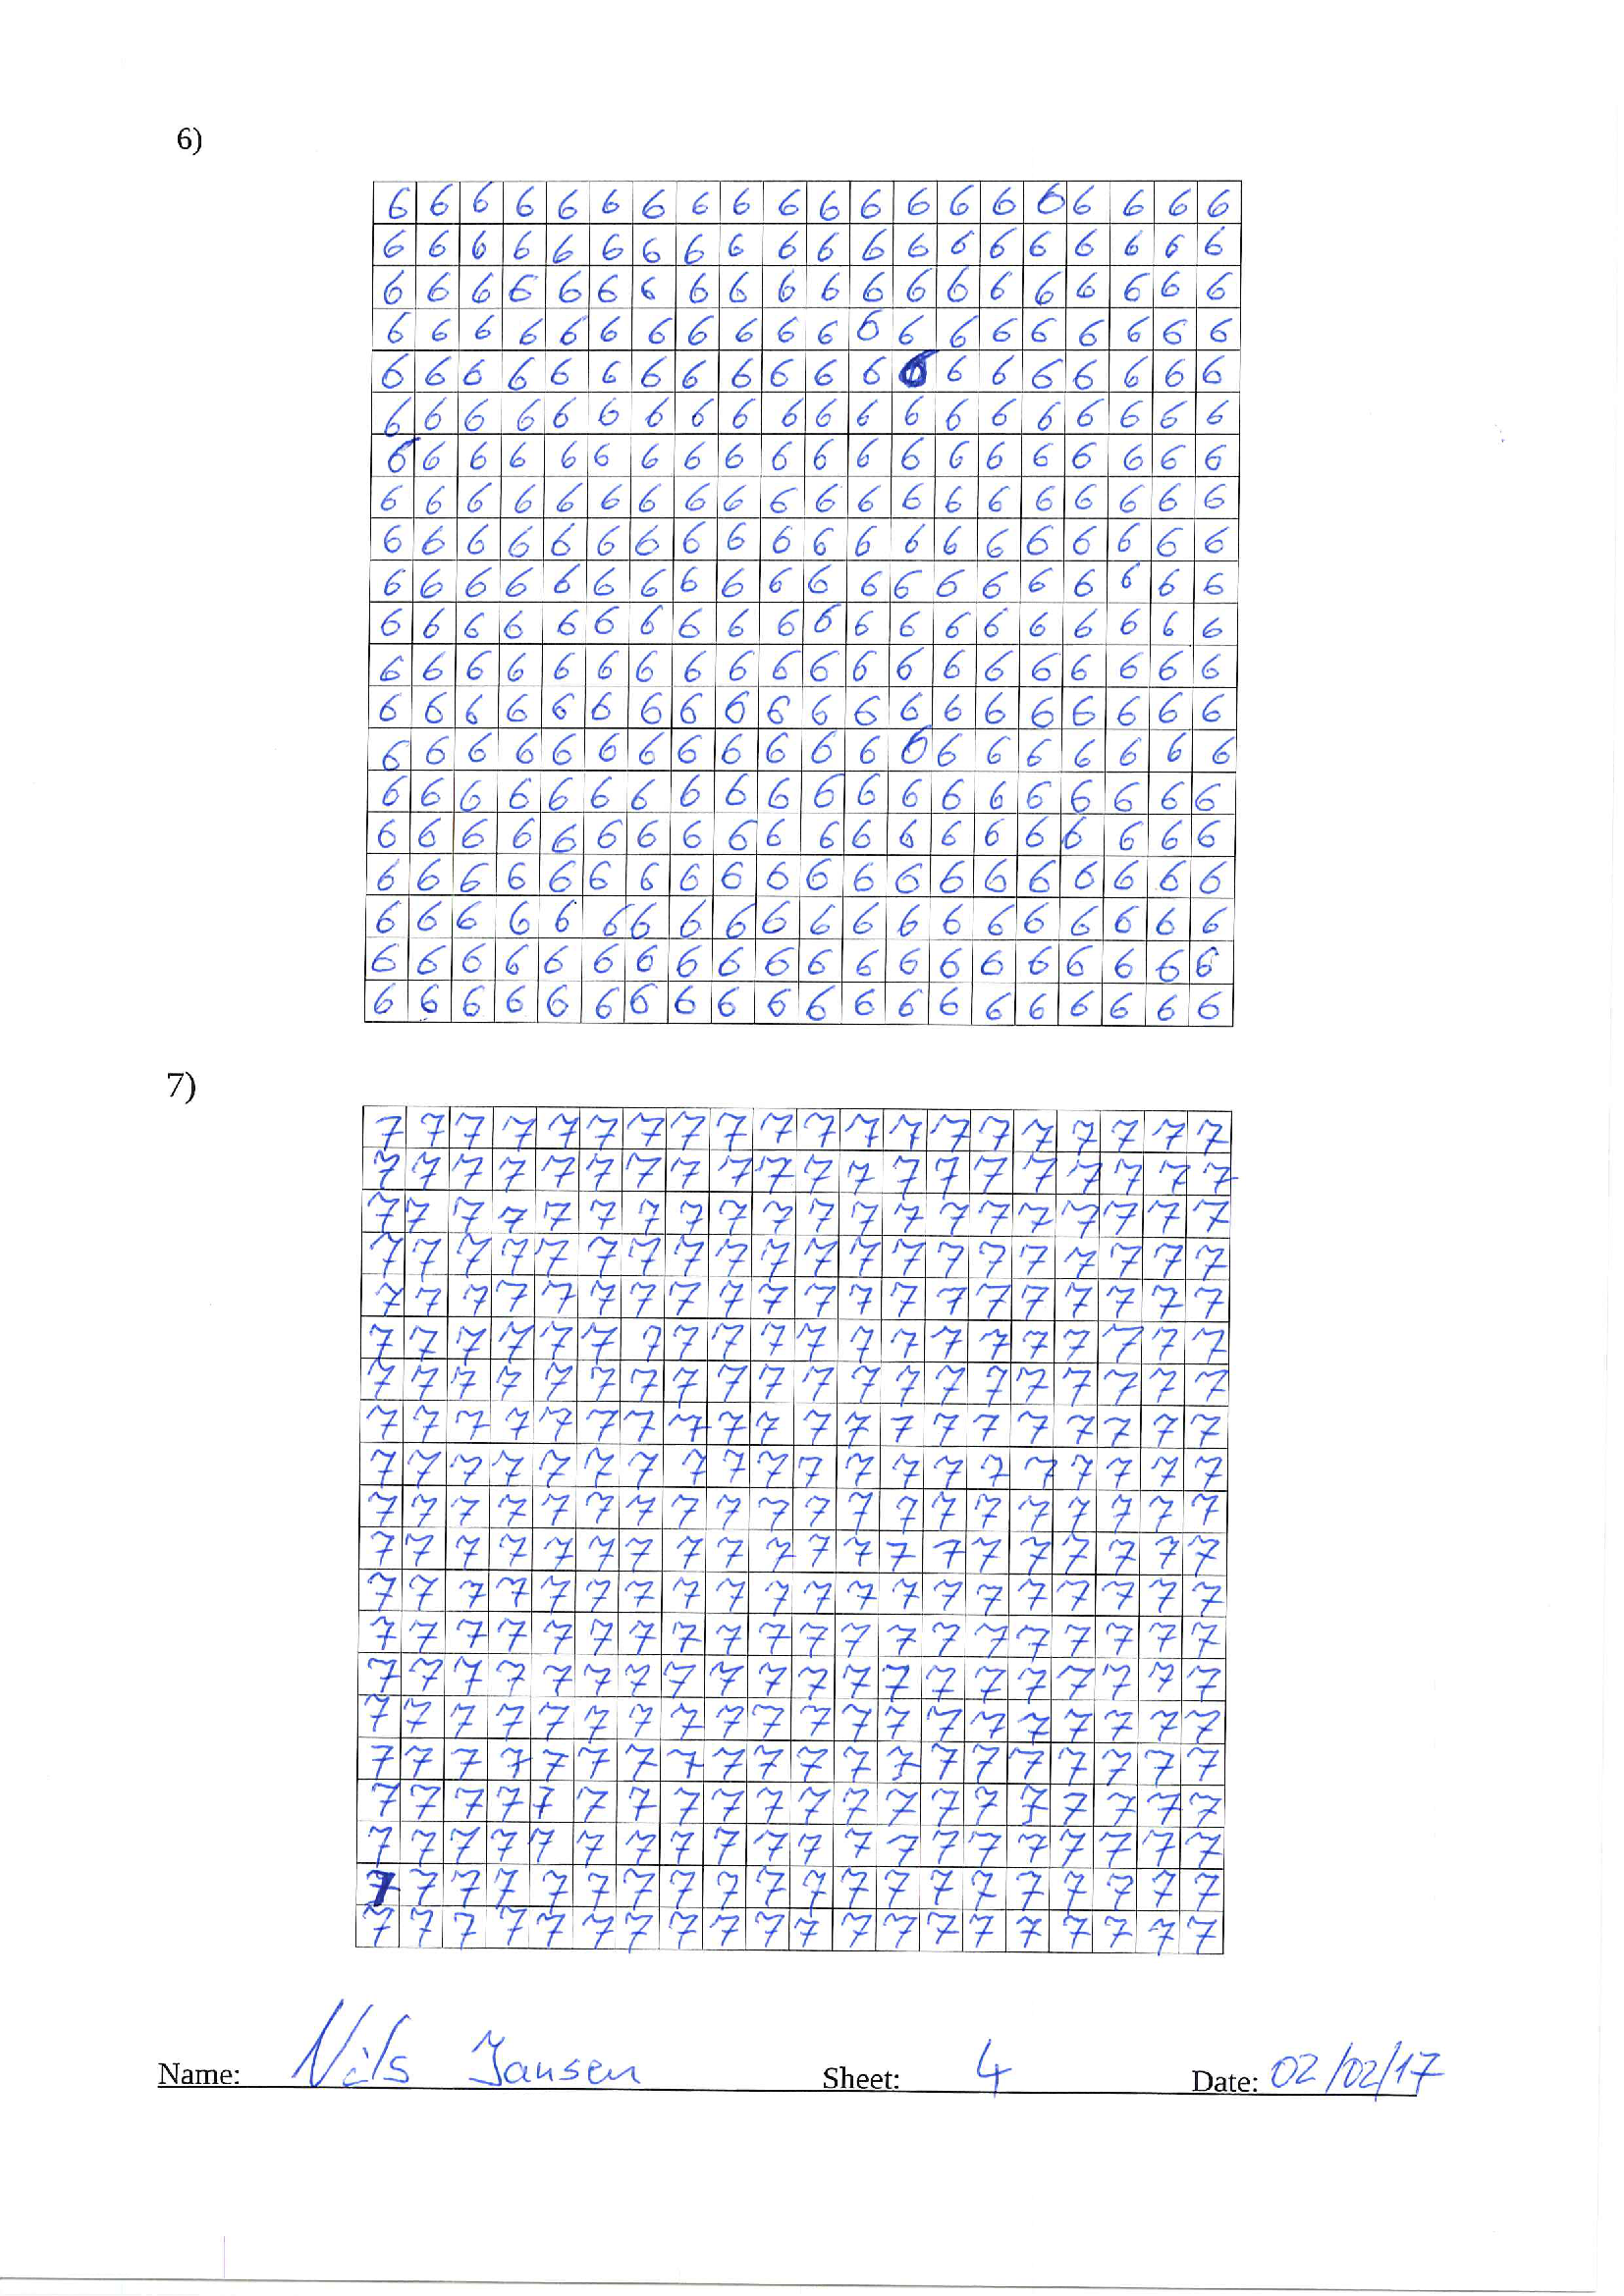 6)
6 6 6 6 6 6 6 6 6 6 6 6 6 6 6 6 6 6 6 6
6 6 6 6 6 6 6 6 6 6 6 6 6 6 6 6 6 6 6 6
6 6 6 6 6 6 6 6 6 6 6 6 6 6 6 6 6 6 6 6
6 6 6 6 6 6 6 6 6 6 6 6 6 6 6 6 6 6 6 6
6 6 6 6 6 6 6 6 6 6 6 6 6 6 6 6 6 6 6 6
6 6 6 6 6 6 6 6 6 6 6 6 6 6 6 6 6 6 6 6
6 6 6 6 6 6 6 6 6 6 6 6 6 6 6 6 6 6 6 6
6 6 6 6 6 6 6 6 6 6 6 6 6 6 6 6 6 6 6 6
6 6 6 6 6 6 6 6 6 6 6 6 6 6 6 6 6 6 6 6
6 6 6 6 6 6 6 6 6 6 6 6 6 6 6 6 6 6 6 6
6 6 6 6 6 6 6 6 6 6 6 6 6 6 6 6 6 6 6 6
6 6 6 6 6 6 6 6 6 6 6 6 6 6 6 6 6 6 6 6
6 6 6 6 6 6 6 6 6 6 6 6 6 6 6 6 6 6 6 6
6 6 6 6 6 6 6 6 6 6 6 6 6 6 6 6 6 6 6 6
6 6 6 6 6 6 6 6 6 6 6 6 6 6 6 6 6 6 6 6
6 6 6 6 6 6 6 6 6 6 6 6 6 6 6 6 6 6 6 6
6 6 6 6 6 6 6 6 6 6 6 6 6 6 6 6 6 6 6 6
6 6 6 6 6 6 6 6 6 6 6 6 6 6 6 6 6 6 6 6
6 6 6 6 6 6 6 6 6 6 6 6 6 6 6 6 6 6 6 6
6 6 6 6 6 6 6 6 6 6 6 6 6 6 6 6 6 6 6 6
7)
7 7 7 7 7 7 7 7 7 7 7 7 7 7 7 7 7 7 7 7
7 7 7 7 7 7 7 7 7 7 7 7 7 7 7 7 7 7 7 7
7 7 7 7 7 7 7 7 7 7 7 7 7 7 7 7 7 7 7 7
7 7 7 7 7 7 7 7 7 7 7 7 7 7 7 7 7 7 7 7
7 7 7 7 7 7 7 7 7 7 7 7 7 7 7 7 7 7 7 7
7 7 7 7 7 7 7 7 7 7 7 7 7 7 7 7 7 7 7 7
7 7 7 7 7 7 7 7 7 7 7 7 7 7 7 7 7 7 7 7
7 7 7 7 7 7 7 7 7 7 7 7 7 7 7 7 7 7 7 7
7 7 7 7 7 7 7 7 7 7 7 7 7 7 7 7 7 7 7 7
7 7 7 7 7 7 7 7 7 7 7 7 7 7 7 7 7 7 7 7
7 7 7 7 7 7 7 7 7 7 7 7 7 7 7 7 7 7 7 7
7 7 7 7 7 7 7 7 7 7 7 7 7 7 7 7 7 7 7 7
7 7 7 7 7 7 7 7 7 7 7 7 7 7 7 7 7 7 7 7
7 7 7 7 7 7 7 7 7 7 7 7 7 7 7 7 7 7 7 7
7 7 7 7 7 7 7 7 7 7 7 7 7 7 7 7 7 7 7 7
7 7 7 7 7 7 7 7 7 7 7 7 7 7 7 7 7 7 7 7
7 7 7 7 7 7 7 7 7 7 7 7 7 7 7 7 7 7 7 7
7 7 7 7 7 7 7 7 7 7 7 7 7 7 7 7 7 7 7 7
7 7 7 7 7 7 7 7 7 7 7 7 7 7 7 7 7 7 7 7
7 7 7 7 7 7 7 7 7 7 7 7 7 7 7 7 7 7 7 7
Name: Nils Jansen Sheet: 4 Date: 02/02/17